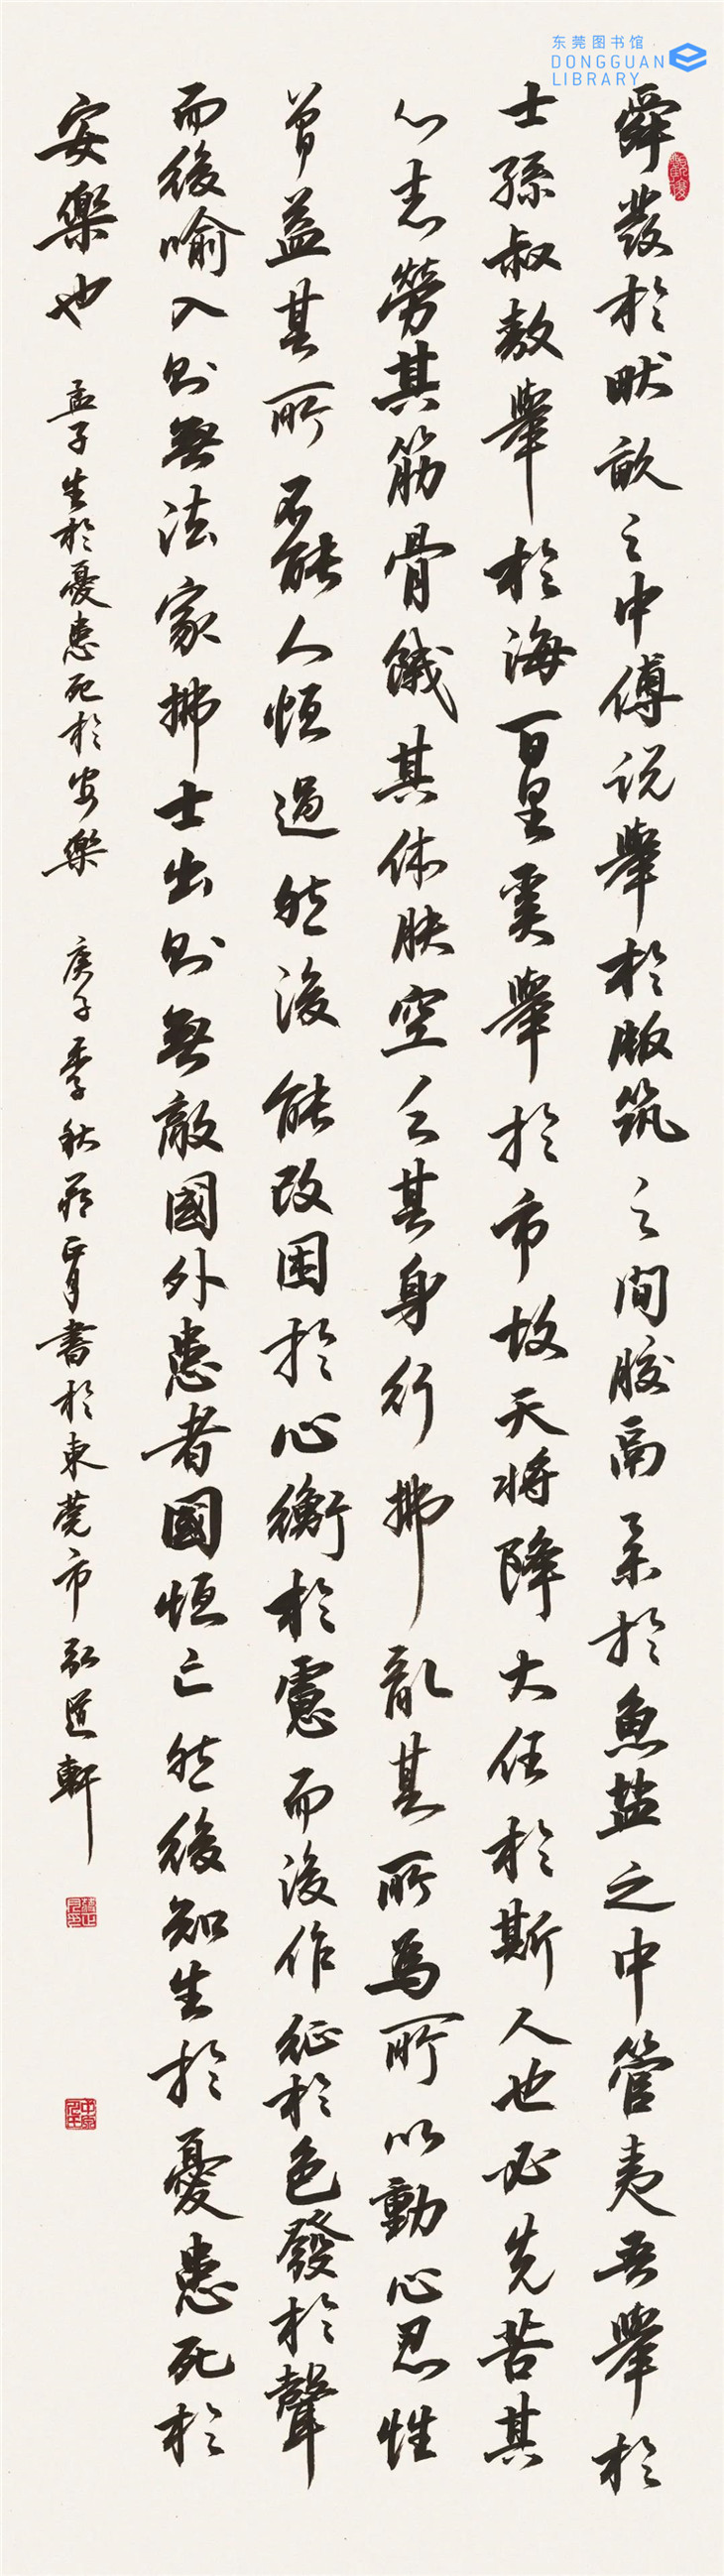 东莞图书馆
DONGGUAN
LIBRARY
舜發於畎畝之中傅説舉於版筑之間膠鬲举於魚盐之中管夷吾舉於
士孫叔敖舉於海百里奚舉於市故天將降大任於斯人也必先苦其
心志勞其筋骨餓其体肤空乏其身行拂亂其所為所以動心忍性
曾益其所不能人恒過然後能改困於心衡於慮而後作征於色發於聲
而後喻入則無法家拂士出則無敵國外患者國恒亡然後知生於憂患死於
安樂也 孟子生於憂患死於安樂 庚子季秋書於東莞市弘道軒